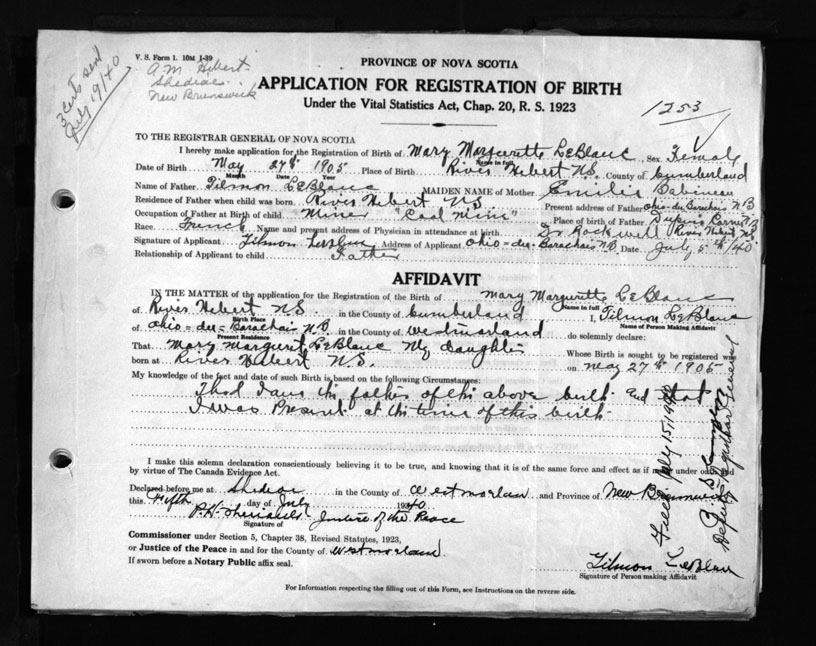 V. S. Form 1. 10M 1-39
A. M. Hebert
Shediac
New Brunswick
3 Certs sent
July 19/40
PROVINCE OF NOVA SCOTIA
APPLICATION FOR REGISTRATION OF BIRTH
Under the Vital Statistics Act, Chap. 20, R. S. 1923
1253
TO THE REGISTRAR GENERAL OF NOVA SCOTIA
I hereby make application for the Registration of Birth of Mary Marguerette LeBlanc Sex Female
Name in full
Date of Birth May 27th 1905 Place of Birth River Hebert N.S. County of Cumberland
Month Date Year
Name of Father Tilmon LeBlanc MAIDEN NAME of Mother Emilie Babineau
Residence of Father when child was born River Hebert N S Present address of Father Ohio-du-Barachois N B
Occupation of Father at Birth of child Miner "Coal Mine" Place of birth of Father Dupuis Corner N.B
Race French Name and present address of Physician in attendance at birth Dr Rockwell River Hebert N.S.
Signature of Applicant Tilmon LeBlanc Address of Applicant Ohio-du-Barachois N B Date July 5th/40
Relationship of Applicant to child Father
AFFIDAVIT
IN THE MATTER of the application for the Registration of the Birth of Mary Marguerette LeBlanc
Name in full
of River Hebert N S. in the County of Cumberland I, Tilmon LeBlanc
Birth Place Name of Person Making Affidavit
of Ohio-du-Barachois N B in the County of Westmorland do solemnly declare:
Present Residence
That Mary Margueret LeBlanc My Daughter Whose Birth is sought to be registered was
born at River Hebert N. S. on May 27th 1905
My knowledge of the fact and date of such Birth is based on the following Circumstances:
That I am the father of the above birth and that
I was Present at the time of this birth
I make this solemn declaration conscientiously believing it to be true, and knowing that it is of the same force and effect as if made under oath and
by virtue of The Canada Evidence Act.
Declared before me at Shediac in the County of Westmorland and Province of New Brunswick
this Fifth day of July 1940
Justice of the Peace
Signature of
Commissioner under Section 5, Chapter 38, Revised Statutes, 1923,
or Justice of the Peace in and for the County of Westmorland.
If sworn before a Notary Public affix seal.
Tilmon LeBlanc
Signature of Person making Affidavit
For Information respecting the filling out of this Form, see Instructions on the reverse side.
Filed July 15, 1940
Deputy Registrar General